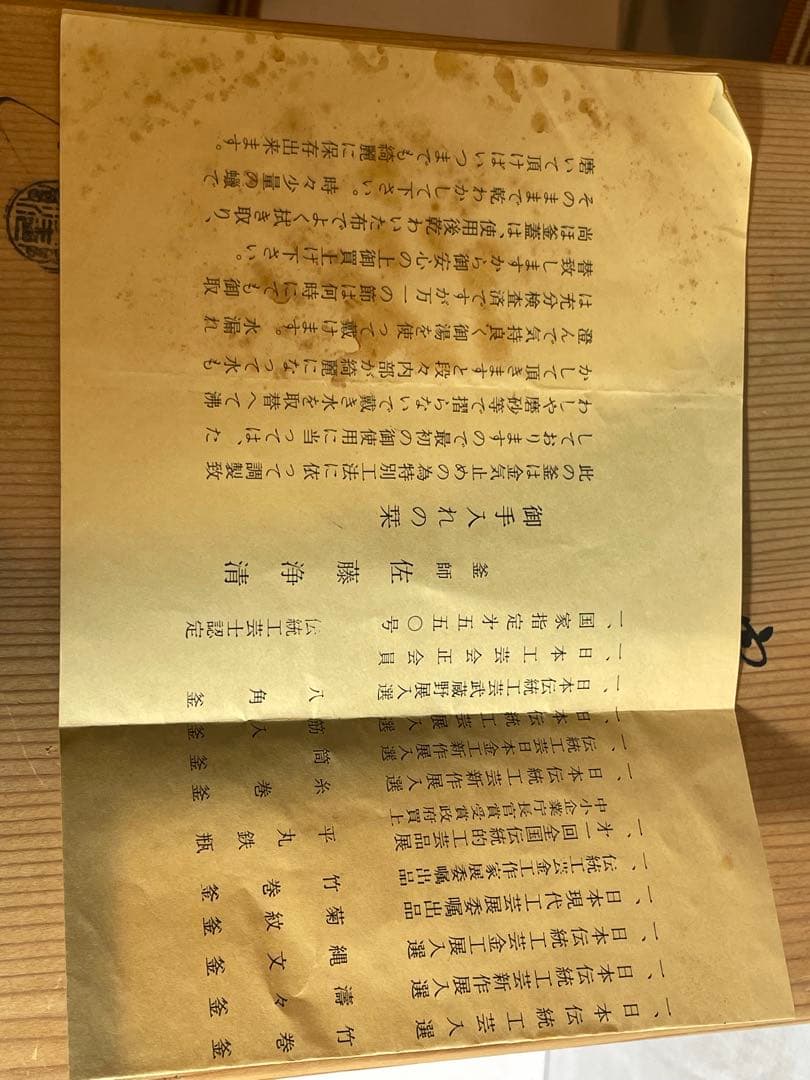 一、日本伝統工芸入選 竹巻釜
一、日本伝統工芸新作展入選 濤々釜
一、日本伝統工芸金工展入選 縄文釜
一、日本現代工芸展委嘱出品 菊紋釜
一、伝統工芸金工作家展委嘱出品 竹巻釜
一、才一回全国伝統的工芸品展 平丸鉄瓶
中小企業庁長官賞受賞政府買上
一、日本伝統工芸新作展入選 糸巻釜
一、伝統工芸日本金工新作展入選 筒釜
一、日本伝統工芸展入選 筋入釜
一、日本伝統工芸武蔵野展入選 八角釜
一、日本工芸会正会員
一、国家指定才五五〇号 伝統工芸士認定
釜師 佐藤浄清
御手入れの栞
此の釜は金気止めの為特別工法に依って調製致
しておりますので最初の御使用に当っては、た
わしや磨砂等で摺らないで戴き水を取替へて沸
かして頂きますと段々内部が綺麗になって水も
澄んで気持良く御湯を使って戴けます。水漏れ
は充分検査済ですが万一の節は何時にても御取
替致しますから御安心の上御買上げ下さい。
尚ほ釜蓋は、使用後乾わいた布でよく拭き取り、
そのままで乾わかして下さい。時々少量の蠟で
磨いて頂けばいつまでも綺麗に保存出来ます。